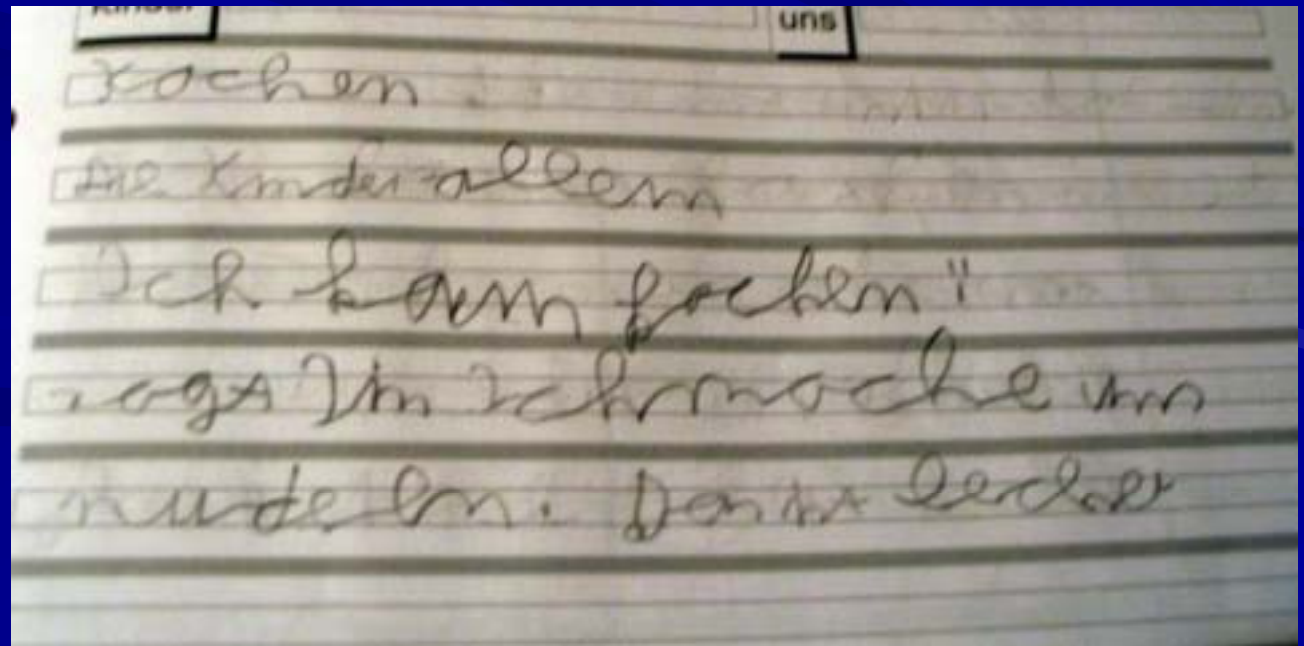 Kinder uns
kochen
die Kinder allein
Ich kann kochen"
sagt Tim Ich mache uns
nudeln. Das ist lecker